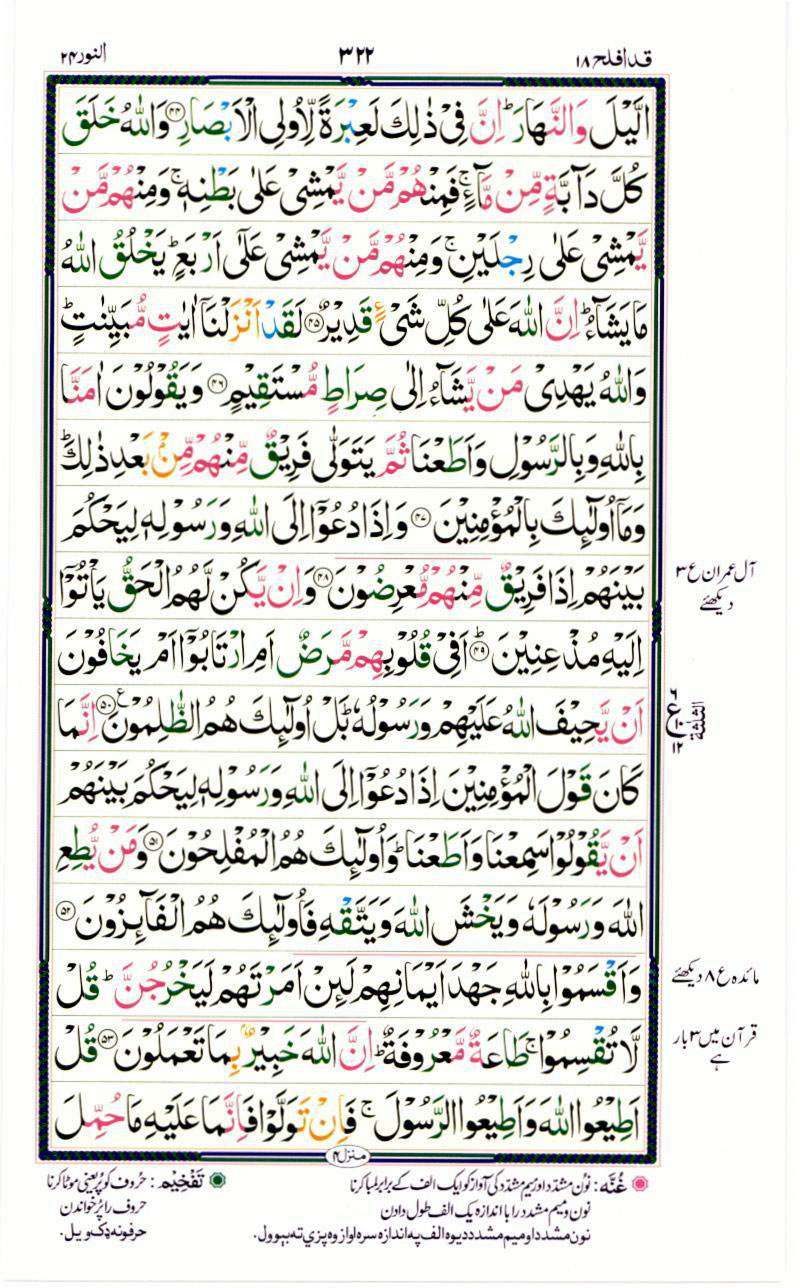 قد افلح ۱۸
۳۲۲
النور ۲۴
الَّيۡلَ وَالنَّهَارَؕ اِنَّ فِىۡ ذٰ لِكَ لَعِبۡرَةً لِّاُولِى الۡاَبۡصَارِ ﴿۴۴﴾ وَاللّٰهُ خَلَقَ
كُلَّ دَآبَّةٍ مِّنۡ مَّآءٍۚ فَمِنۡهُمۡ مَّنۡ يَّمۡشِىۡ عَلٰى بَطۡنِهٖۚ وَمِنۡهُمۡ مَّنۡ
يَّمۡشِىۡ عَلٰى رِجۡلَيۡنِۚ وَمِنۡهُمۡ مَّنۡ يَّمۡشِىۡ عَلٰٓى اَرۡبَعٍؕ يَخۡلُقُ اللّٰهُ
مَا يَشَآءُؕ اِنَّ اللّٰهَ عَلٰى كُلِّ شَىۡءٍ قَدِيۡرٌ ﴿۴۵﴾ لَقَدۡ اَنۡزَلۡنَاۤ اٰيٰتٍ مُّبَيِّنٰتٍؕ
وَاللّٰهُ يَهۡدِىۡ مَنۡ يَّشَآءُ اِلٰى صِرَاطٍ مُّسۡتَقِيۡمٍ ﴿۴۶﴾ وَيَقُوۡلُوۡنَ اٰمَنَّا
بِاللّٰهِ وَبِالرَّسُوۡلِ وَاَطَعۡنَا ثُمَّ يَتَوَلّٰى فَرِيۡقٌ مِّنۡهُمۡ مِّنۡۢ بَعۡدِ ذٰلِكَؕ
وَمَاۤ اُولٰٓٮِٕكَ بِالۡمُؤۡمِنِيۡنَ ﴿۴۷﴾ وَاِذَا دُعُوۡۤا اِلَى اللّٰهِ وَرَسُوۡلِهٖ لِيَحۡكُمَ
بَيۡنَهُمۡ اِذَا فَرِيۡقٌ مِّنۡهُمۡ مُّعۡرِضُوۡنَ ﴿۴۸﴾ وَاِنۡ يَّكُنۡ لَّهُمُ الۡحَقُّ يَاۡتُوۡۤا
اِلَيۡهِ مُذۡعِنِيۡنَؕ ﴿۴۹﴾ اَفِىۡ قُلُوۡبِهِمۡ مَّرَضٌ اَمِ ارۡتَابُوۡۤا اَمۡ يَخَافُوۡنَ
اَنۡ يَّحِيۡفَ اللّٰهُ عَلَيۡهِمۡ وَرَسُوۡلُهٗؕ بَلۡ اُولٰٓٮِٕكَ هُمُ الظّٰلِمُوۡنَ ﴿۵۰﴾ اِنَّمَا
كَانَ قَوۡلَ الۡمُؤۡمِنِيۡنَ اِذَا دُعُوۡۤا اِلَى اللّٰهِ وَرَسُوۡلِهٖ لِيَحۡكُمَ بَيۡنَهُمۡ
اَنۡ يَّقُوۡلُوۡا سَمِعۡنَا وَاَطَعۡنَاؕ وَاُولٰٓٮِٕكَ هُمُ الۡمُفۡلِحُوۡنَ ﴿۵۱﴾ وَمَنۡ يُّطِعِ
اللّٰهَ وَرَسُوۡلَهٗ وَيَخۡشَ اللّٰهَ وَيَتَّقۡهِ فَاُولٰٓٮِٕكَ هُمُ الۡفَآٮِٕزُوۡنَ ﴿۵۲﴾
وَاَقۡسَمُوۡا بِاللّٰهِ جَهۡدَ اَيۡمَانِهِمۡ لَٮِٕنۡ اَمَرۡتَهُمۡ لَيَخۡرُجُنَّؕ قُلْ
لَّا تُقۡسِمُوۡاۚ طَاعَةٌ مَّعۡرُوۡفَةٌؕ اِنَّ اللّٰهَ خَبِيۡرٌۢ بِمَا تَعۡمَلُوۡنَ ﴿۵۳﴾ قُلۡ
اَطِيۡعُوا اللّٰهَ وَاَطِيۡعُوا الرَّسُوۡلَۚ فَاِنۡ تَوَلَّوۡا فَاِنَّمَا عَلَيۡهِ مَا حُمِّلَ
آل عمران ع ۳
دیکھئے
۶
ع
۱۰
۱۲
الثلثة
مائدہ ع ۸ دیکھئے
قرآن میں ۳ بار
ہے
منزل ۴
غُنَّه: نُون مشدّد اور میم مشدّد کی آواز کو ایک الف کے برابر لمبا کرنا
نون و میم مشدد را با اندازہ یک الف طول دادن
نون مشدد او میم مشدد دیوه الف په اندازه سره اواز وه پزي ته بیوول.
تَفْخِيْم: حُروف کو پُر یعنی موٹا کرنا
حروف را پُر خواندن
حرفونه ډک ویل.